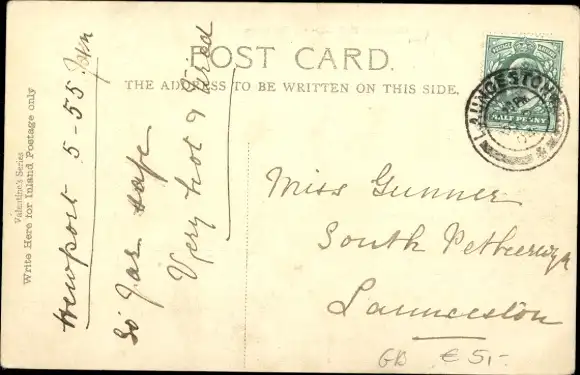 POST CARD.
THE ADDRESS TO BE WRITTEN ON THIS SIDE.
Valentine's Series
Write Here for Inland Postage only
Newport 5-55
So far safe
Very hot & tired
LAUNCESTON
HALF PENNY
Miss Gunner
South Petherwyn
Launceston
GB € 5,-